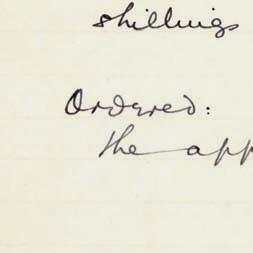 shillings
Ordered:
the app